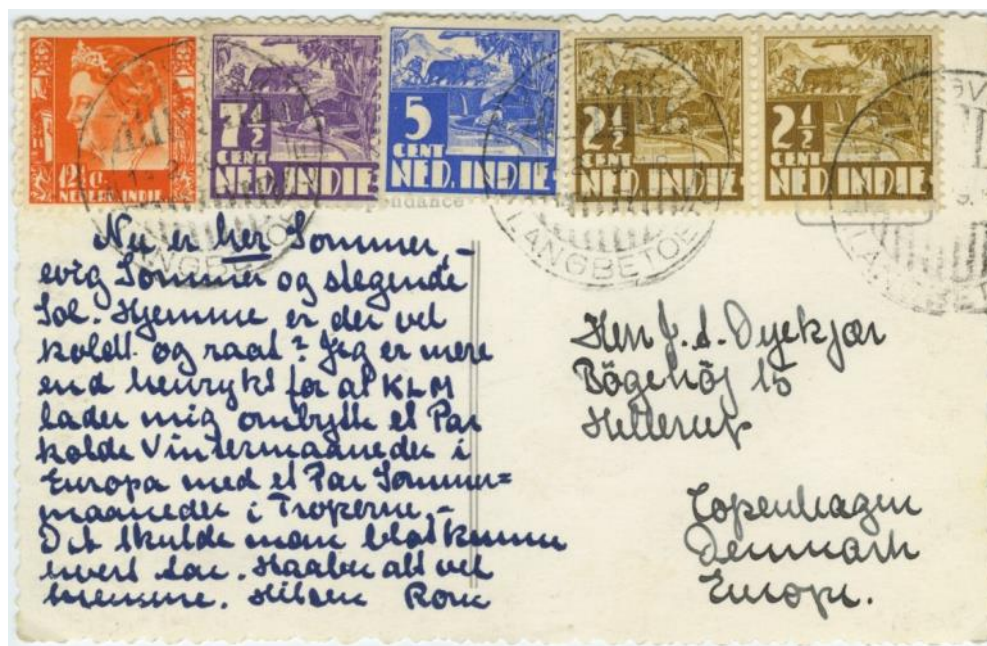 12½ c.
NEDERL. INDIE
7½
CENT
NED. INDIE
5
CENT
NED. INDIE
2½
CENT
NED. INDIE
2½
CENT
NED. INDIE
ndance
TJANGBETOE
Nu er her Sommer,
evig Sommer og stegende
Sol. Hjemme er der vel
koldt og raat? Jeg er mere
end henrykt for at KLM
lader mig ombytte et Par
kolde Vintermaaneder i
Europa med et Par Sommer=
maaneder i Troperne.-
Det skulde man blot kunne
hvert Aar. Haaber alt vel
hjemme. Hilsen
Herr J. A. Dyekjær
Bögehöj 15
Hellerup
Copenhagen
Denmark
Europe.